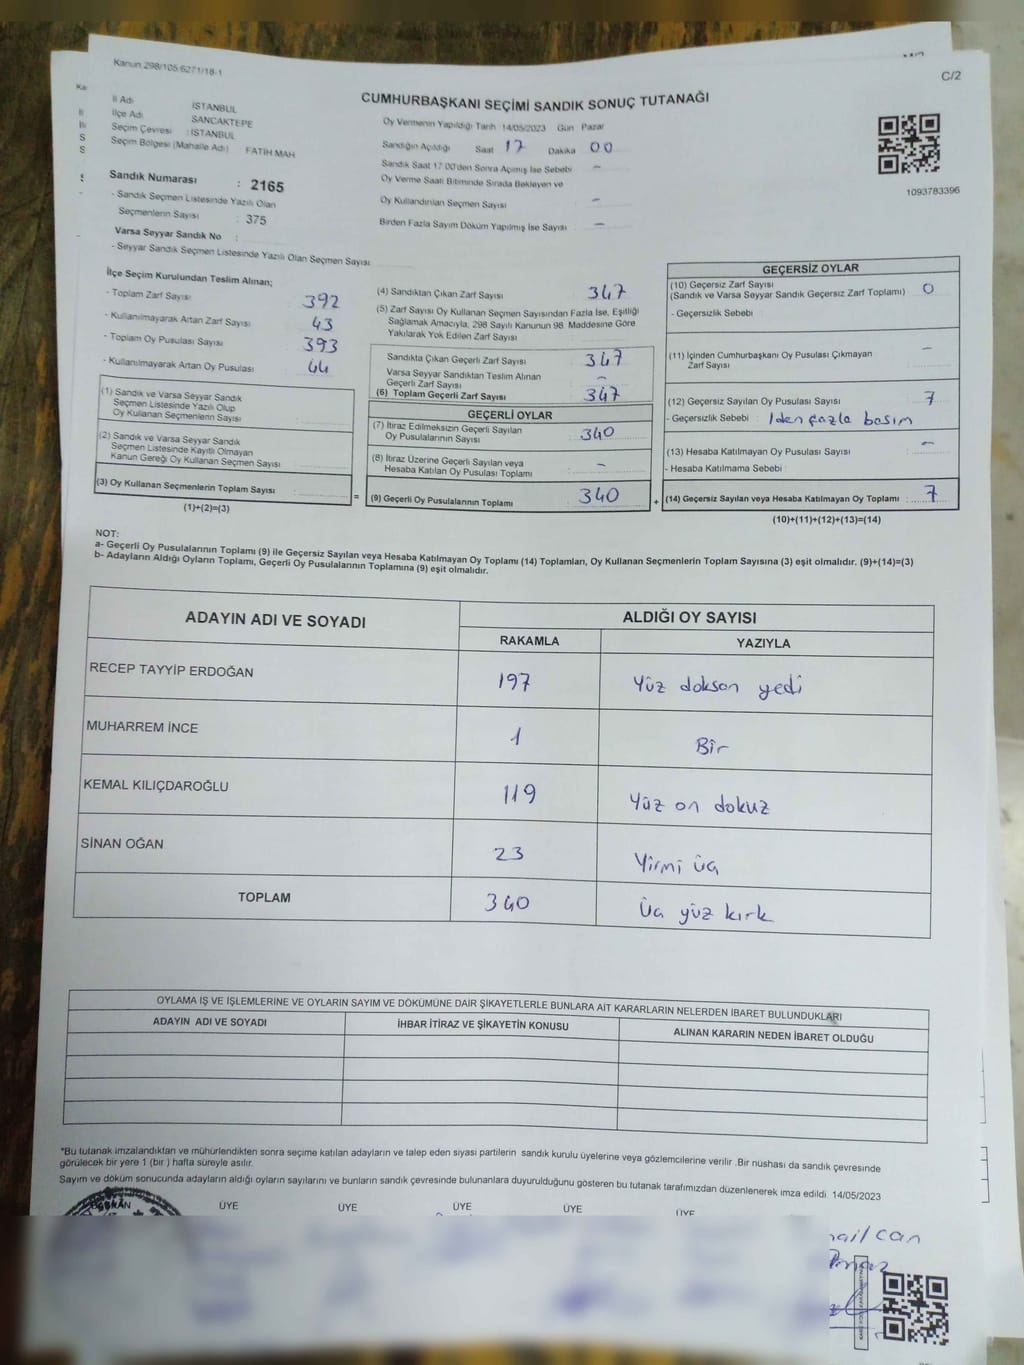 Kanun 298/105,6271/18-1
C/2
CUMHURBAŞKANI SEÇİMİ SANDIK SONUÇ TUTANAĞI
İl Adı İSTANBUL
İlçe Adı SANCAKTEPE
Seçim Çevresi : İSTANBUL
Seçim Bölgesi (Mahalle Adı) FATİH MAH
Sandık Numarası : 2165
- Sandık Seçmen Listesinde Yazılı Olan
Seçmenlerin Sayısı : 375
Varsa Seyyar Sandık No :
- Seyyar Sandık Seçmen Listesinde Yazılı Olan Seçmen Sayısı:
Oy Vermenin Yapıldığı Tarih 14/05/2023 Gün Pazar
Sandığın Açıldığı Saat 17 Dakika 00
Sandık Saat 17:00'den Sonra Açımış İse Sebebi –
Oy Verme Saati Bitiminde Sırada Bekleyen ve
Oy Kullandırılan Seçmen Sayısı –
Birden Fazla Sayım Döküm Yapılmış İse Sayısı –
1093783396
İlçe Seçim Kurulundan Teslim Alınan;
- Toplam Zarf Sayısı 392
- Kullanılmayarak Artan Zarf Sayısı 43
- Toplam Oy Pusulası Sayısı 393
- Kullanılmayarak Artan Oy Pusulası 44
(1) Sandık ve Varsa Seyyar Sandık
Seçmen Listesinde Yazılı Olup
Oy Kullanan Seçmenlerin Sayısı :
(2) Sandık ve Varsa Seyyar Sandık
Seçmen Listesinde Kayıtlı Olmayan
Kanun Gereği Oy Kullanan Seçmen Sayısı :
(3) Oy Kullanan Seçmenlerin Toplam Sayısı :
(1)+(2)=(3)
=
(4) Sandıktan Çıkan Zarf Sayısı : 347
(5) Zarf Sayısı Oy Kullanan Seçmen Sayısından Fazla İse, Eşitliği
Sağlamak Amacıyla, 298 Sayılı Kanunun 98. Maddesine Göre
Yakılarak Yok Edilen Zarf Sayısı :
Sandıkta Çıkan Geçerli Zarf Sayısı : 347
Varsa Seyyar Sandıktan Teslim Alınan
Geçerli Zarf Sayısı : –
(6) Toplam Geçerli Zarf Sayısı : 347
GEÇERLİ OYLAR
(7) İtiraz Edilmeksizin Geçerli Sayılan
Oy Pusulalarının Sayısı : 340
(8) İtiraz Üzerine Geçerli Sayılan veya
Hesaba Katılan Oy Pusulası Toplamı : –
(9) Geçerli Oy Pusulalarının Toplamı : 340
+
GEÇERSİZ OYLAR
(10) Geçersiz Zarf Sayısı
(Sandık ve Varsa Seyyar Sandık Geçersiz Zarf Toplamı) : 0
- Geçersizlik Sebebi :
(11) İçinden Cumhurbaşkanı Oy Pusulası Çıkmayan
Zarf Sayısı : –
(12) Geçersiz Sayılan Oy Pusulası Sayısı : 7
- Geçersizlik Sebebi : 1den fazla basım
(13) Hesaba Katılmayan Oy Pusulası Sayısı : –
- Hesaba Katılmama Sebebi :
(14) Geçersiz Sayılan veya Hesaba Katılmayan Oy Toplamı : 7
(10)+(11)+(12)+(13)=(14)
NOT:
a- Geçerli Oy Pusulalarının Toplamı (9) ile Geçersiz Sayılan veya Hesaba Katılmayan Oy Toplamı (14) Toplamları, Oy Kullanan Seçmenlerin Toplam Sayısına (3) eşit olmalıdır. (9)+(14)=(3)
b- Adayların Aldığı Oyların Toplamı, Geçerli Oy Pusulalarının Toplamına (9) eşit olmalıdır.
ADAYIN ADI VE SOYADI ALDIĞI OY SAYISI
RAKAMLA YAZIYLA
RECEP TAYYİP ERDOĞAN 197 Yüz doksan yedi
MUHARREM İNCE 1 Bir
KEMAL KILIÇDAROĞLU 119 Yüz on dokuz
SİNAN OĞAN 23 Yirmi üç
TOPLAM 340 Üç yüz kırk
OYLAMA İŞ VE İŞLEMLERİNE VE OYLARIN SAYIM VE DÖKÜMÜNE DAİR ŞİKAYETLERLE BUNLARA AİT KARARLARIN NELERDEN İBARET BULUNDUKLARI
ADAYIN ADI VE SOYADI İHBAR İTİRAZ VE ŞİKAYETİN KONUSU ALINAN KARARIN NEDEN İBARET OLDUĞU
*Bu tutanak imzalandıktan ve mühürlendikten sonra seçime katılan adayların ve talep eden siyasi partilerin sandık kurulu üyelerine veya gözlemcilerine verilir .Bir nüshası da sandık çevresinde
görülecek bir yere 1 (bir ) hafta süreyle asılır.
Sayım ve döküm sonucunda adayların aldığı oyların sayılarını ve bunların sandık çevresinde bulunanlara duyurulduğunu gösteren bu tutanak tarafımızdan düzenlenerek imza edildi. 14/05/2023
BAŞKAN ÜYE ÜYE ÜYE ÜYE ÜYE
can